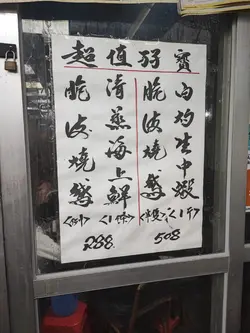 超值孖寶
脆皮燒鵝
清蒸海上鮮
<1條>
288
脆皮燒鵝
<半隻>
白灼生中蝦
<1斤>
508